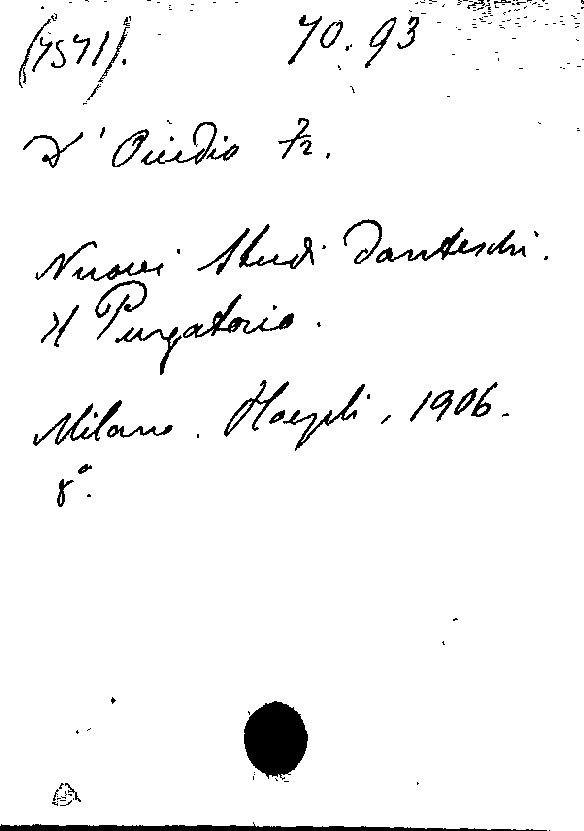 (7571). 70.93
D'Ovidio Fr.
Nuovi Studi Danteschi.
Il Purgatorio.
Milano. Hoepli, 1906.
8°.